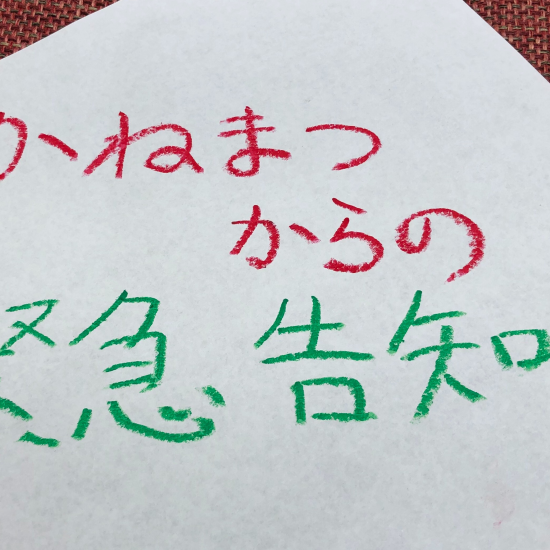 かねまつ
からの
緊急告知